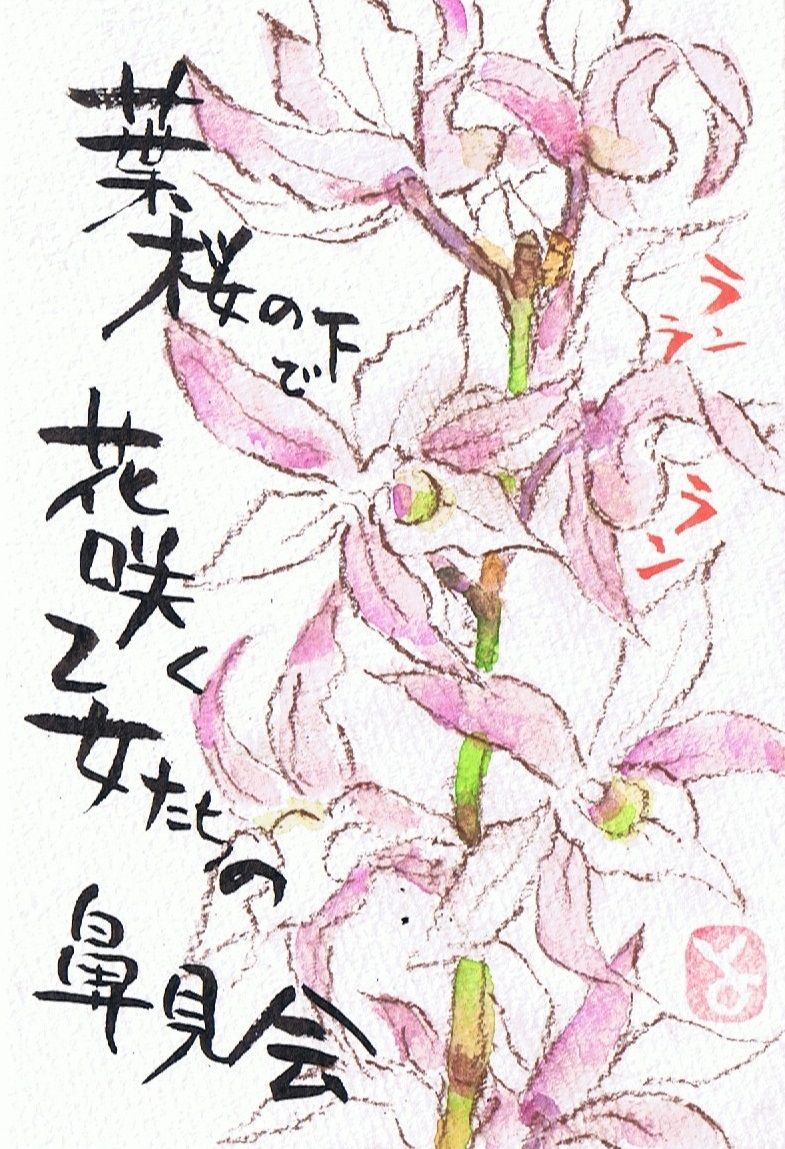 葉桜の下で
花咲く
乙女たちの
鼻見会
ララン
ラン